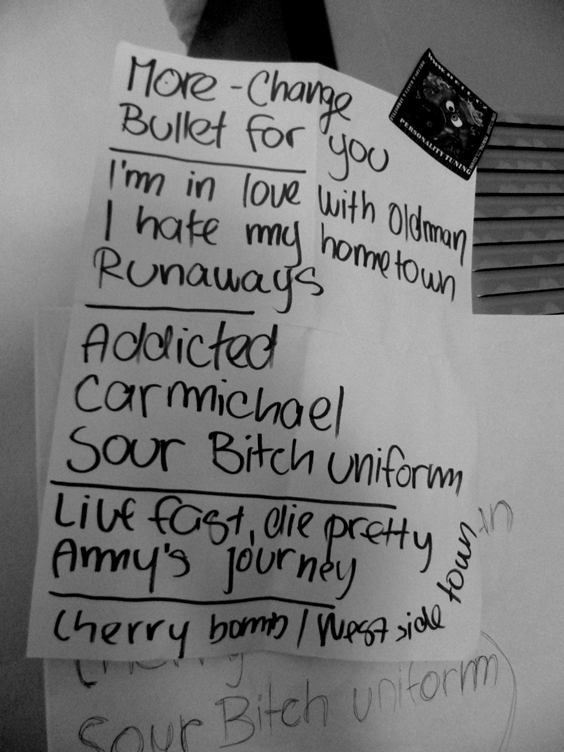 More - Change
Bullet for you
I'm in love with oldman
I hate my hometown
Runaways
Addicted
Carmichael
Sour Bitch uniform
Live fast, die pretty
Amy's journey
Cherry bomb / West side town in
PERSONALITY TUNING
Cherry
Sour Bitch uniform